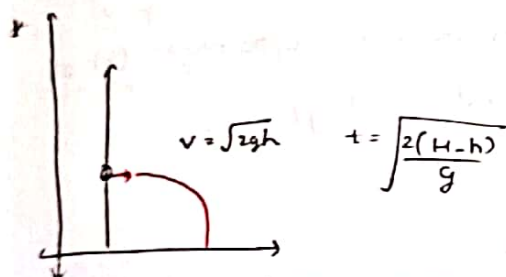 Y
v = √2gh
t = √2(H-h)/g